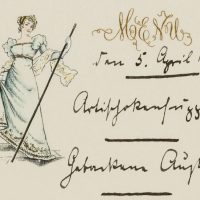 MENU
den 5. April
Artischokensupp
Gebackene Aust